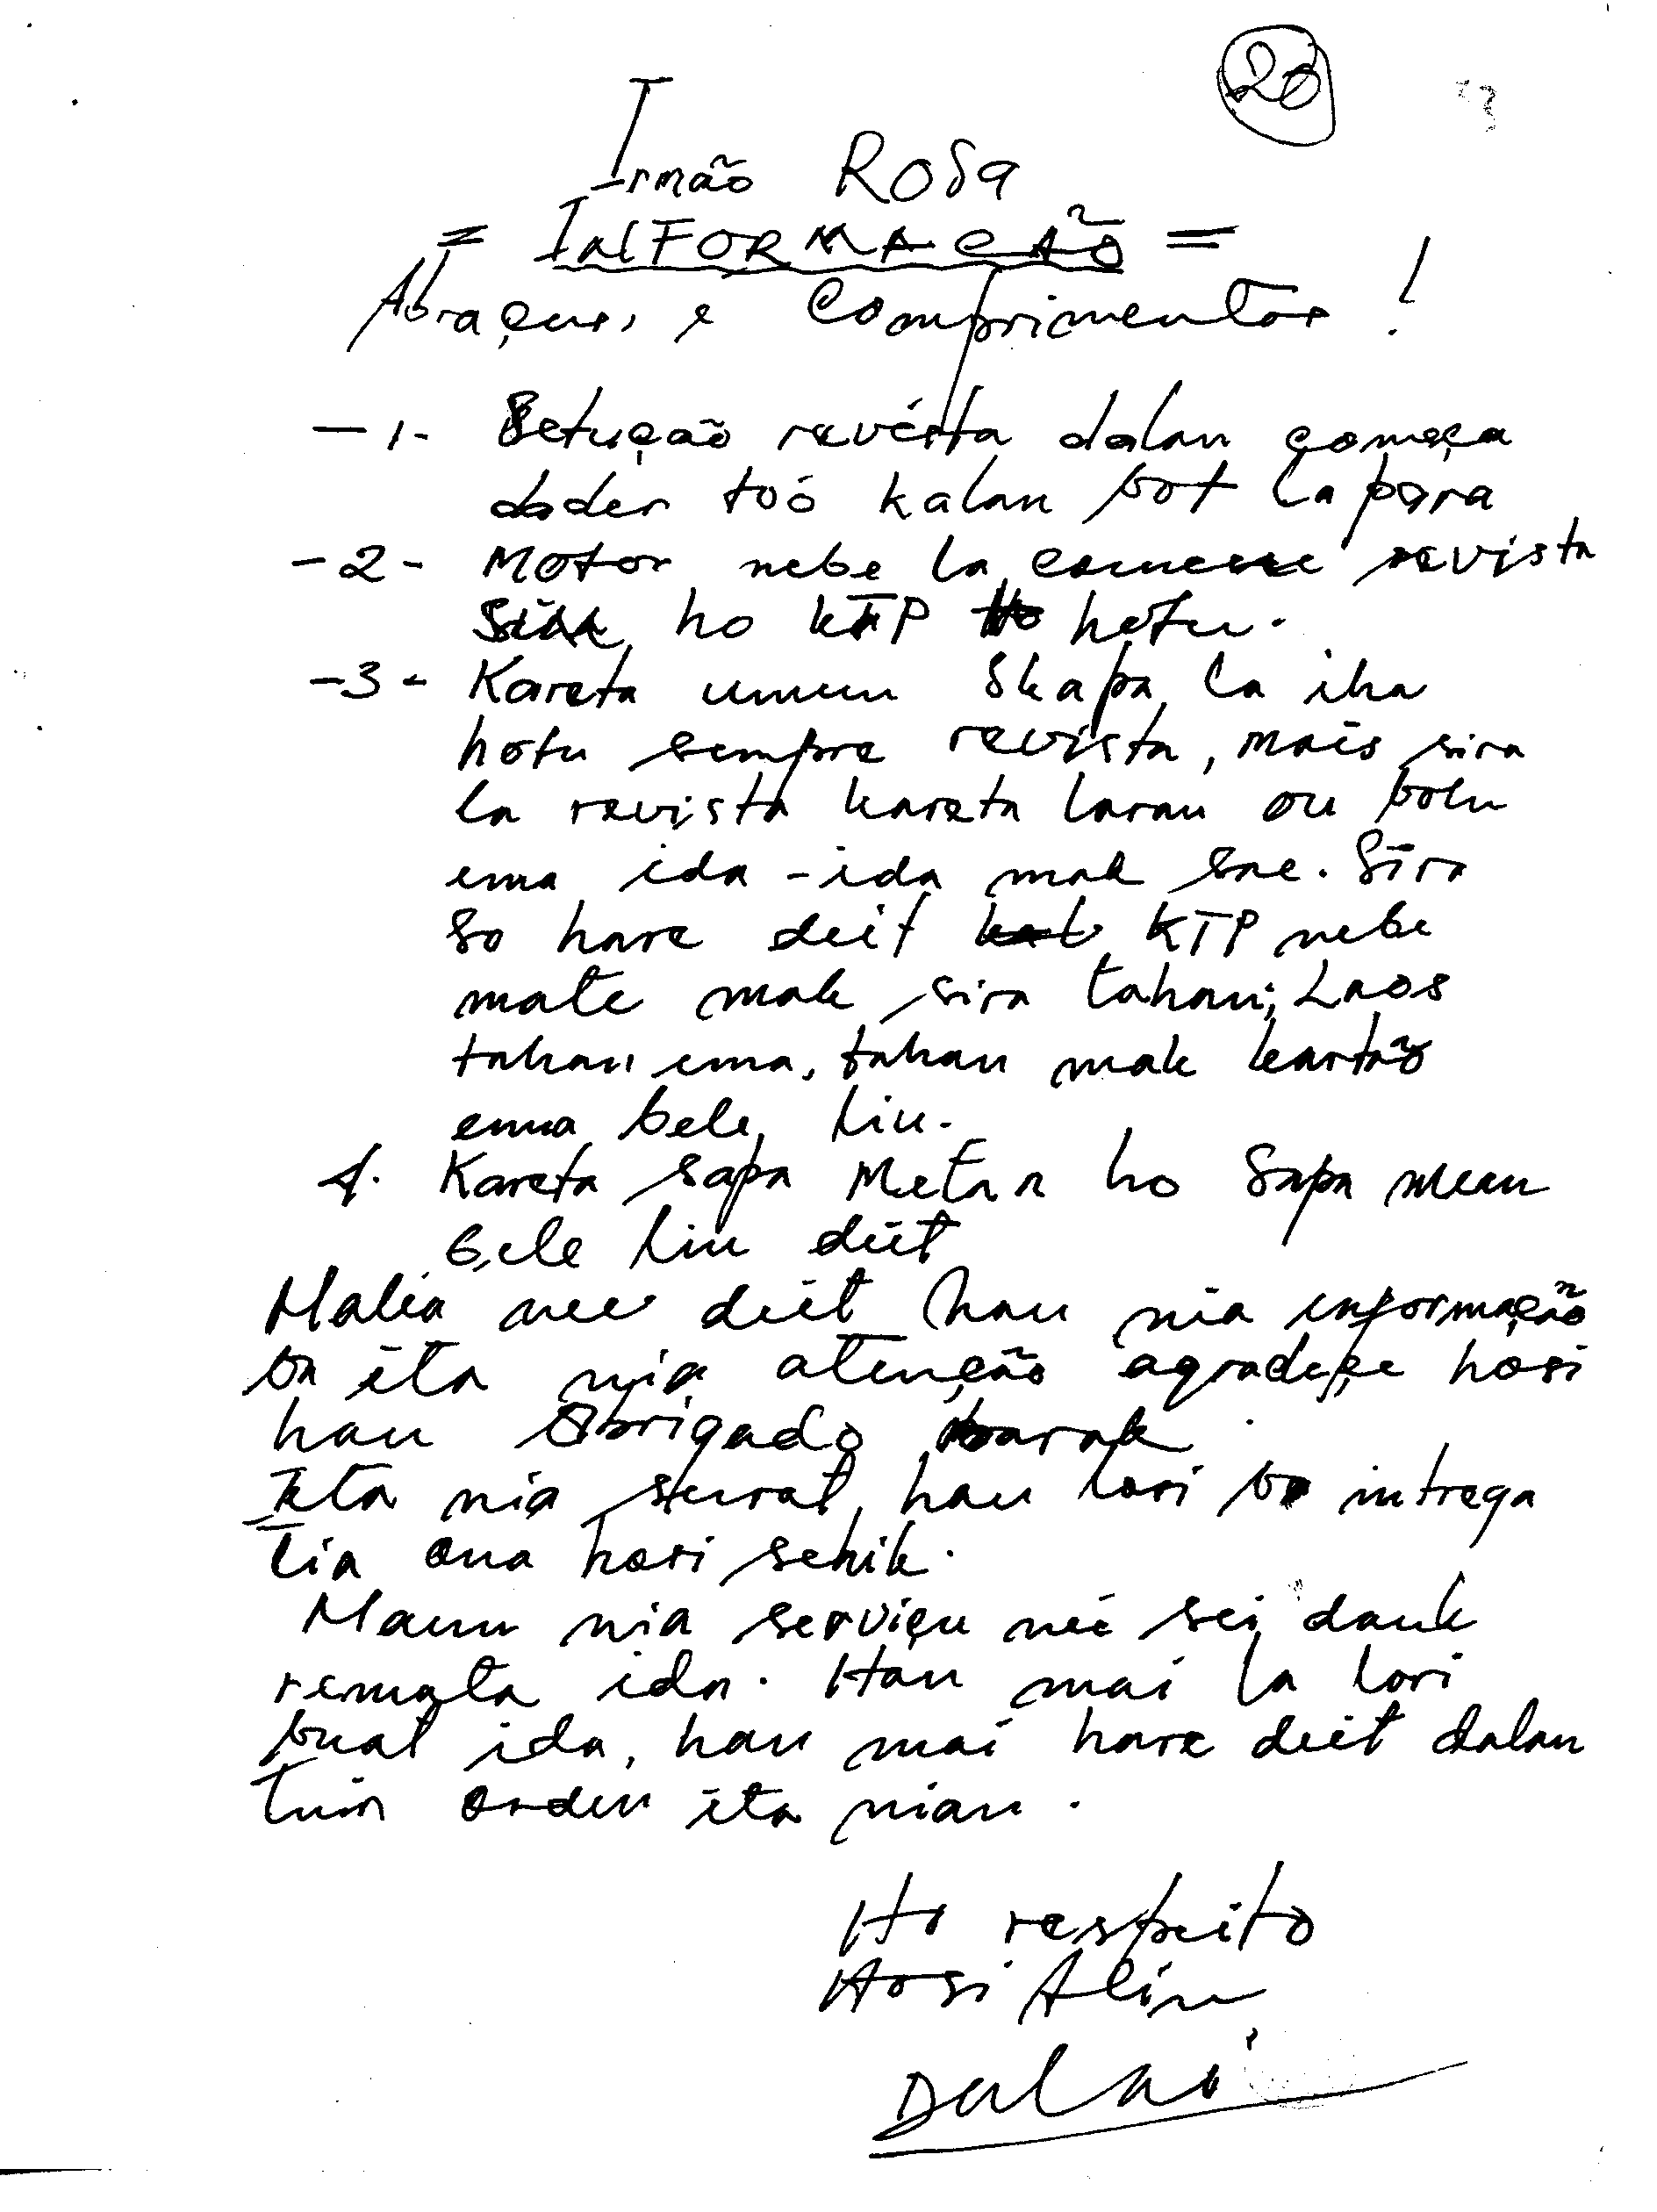 20
Irmão ROSA
= INFORMAÇÃO =
Abraçus, e Comprimentos !
-1- Setução revista dalan começa
dader toó kalan bot la para
-2- Motor nebe la comesse revista
SIM ho KTP hotu.
-3- Kareta umun Skapa la iha
hotu sempre revista, mais sira
la revista kareta laran ou bolu
ema ida-ida mak sae. Sira
so hare deit KTP nebe
mate mak sira tahan; Laos
tahan ema, tahan mak kartão
ema bele liu.
4. Kareta sapa Metan ho Sapa mean
bele liu deit
Malia nee deit hau nia informação
ba ita nia atenção agradeçe hosi
hau Obrigado barak
Ita nia surat, hau lori ba intrega
tia ona hori sehik.
Maun nia serviçu neé sei dauk
remata ida. Hau mai la lori
buat ida, hau mai hare deit dalan
tuir orden ita nian.
Ho respeito
Hosi Alin
Dulai